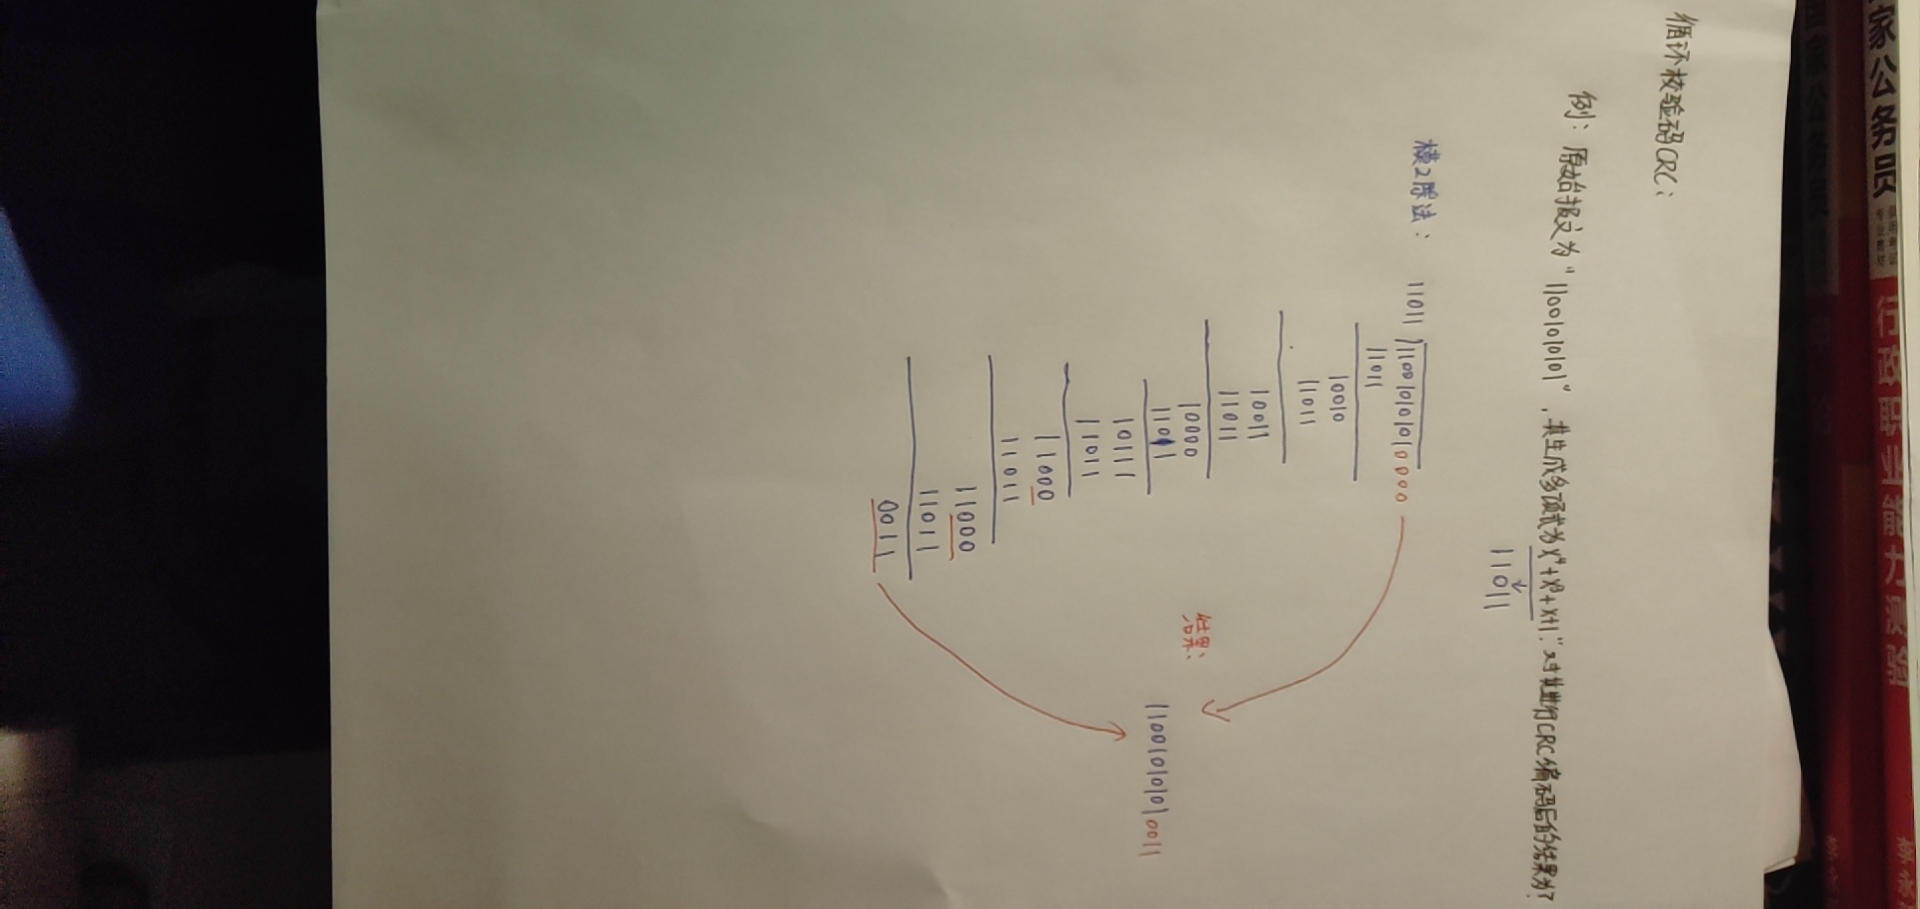 循环校验码CRC：
例：原始报文为“11001010101”，其生成多项式为x⁴+x³+x+1.”对其进行CRC编码后的结果为？
11011
模2除法：
11011
110010101010000
11011
10010
11011
10011
11011
10000
11011
10111
11011
11000
11011
11000
11011
0011
结果：
110010101010011
家公务员
行政职业能力测验